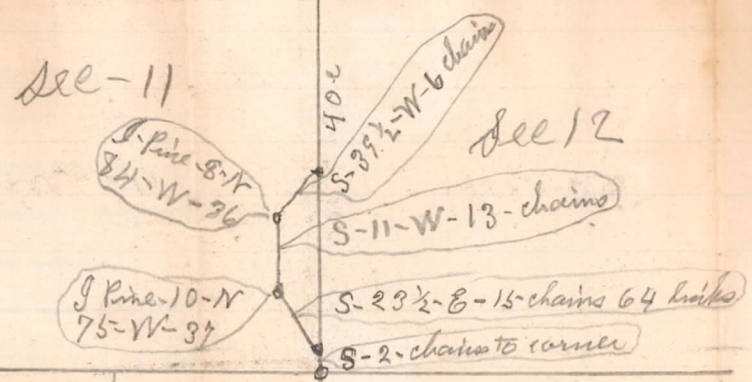 sec-11
40c
S-39½-W-6 chains
Sec 12
J-Pine-8-N
84-W-36
S-11-W-13-chains
J Pine-10-N
75-W-37
S-23½-E-15-chains 64 links
S-2-chains to corner